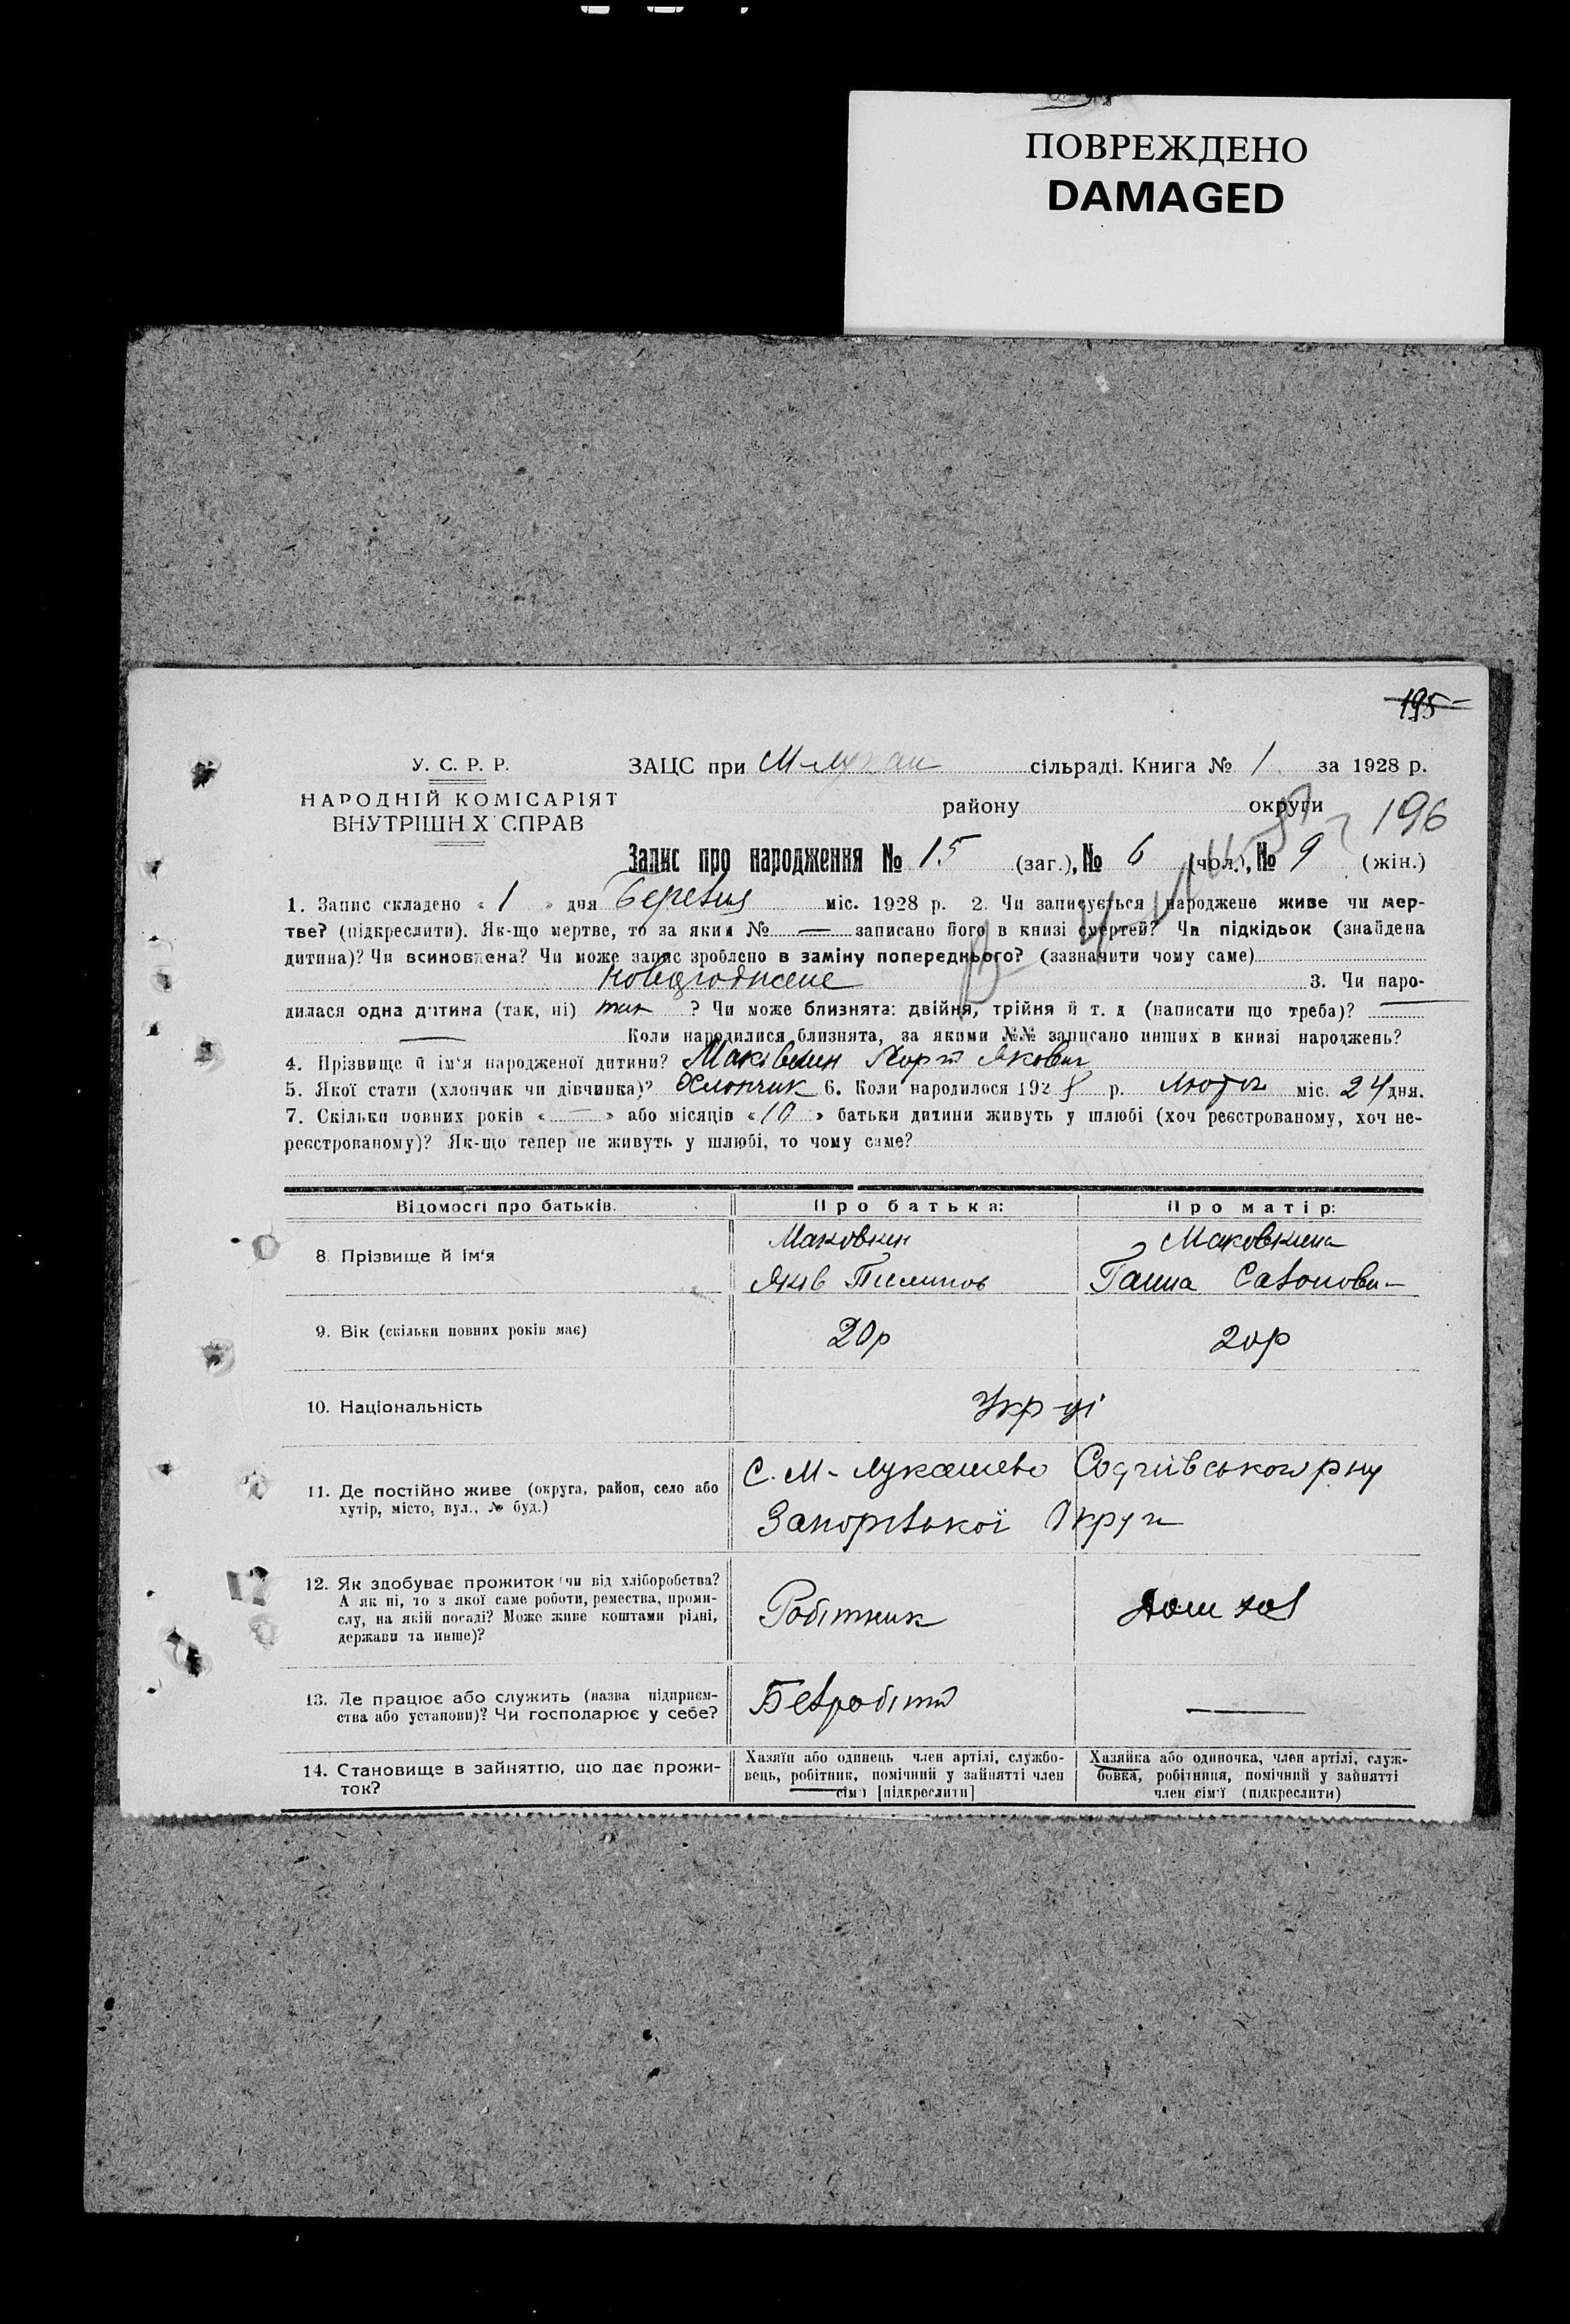 ПОВРЕЖДЕНО
DAMAGED
195
У. С. Р. Р.
НАРОДНІЙ КОМІСАРІЯТ
ВНУТРІШН Х СПРАВ
ЗАЦС при М-Лукаш сільраді. Книга № 1 за 1928 р.
району округи 196
Запис про народження № 15 (заг.), № 6 (чол.), № 9 (жін.)
1. Запис складено « 1 » дня Березня міс. 1928 р. 2. Чи записується народжене живе чи мер-
тве? (підкреслити). Як-що мертве, то за яким № — записано його в книзі смертей? Чи підкідьок (знайдена
дитина)? Чи всиновлена? Чи може запис зроблено в заміну попереднього? (зазначити чому саме)
новороджене 3. Чи наро-
дилася одна дитина (так, ні) так ? Чи може близнята: двійня, трійня й т. д (написати що треба)? —
— Коли народилися близнята, за якими №№ записано инших в книзі народжень?
4. Прізвище й ім'я народженої дитини? Маковкин Якович
5. Якої стати (хлопчик чи дівчинка)? Хлопчик 6. Коли народилося 1928 р. Лютого міс. 24 дня.
7. Скільки повних років « — » або місяців « 10 » батьки дитини живуть у шлюбі (хоч реєстрованому, хоч не-
реєстрованому)? Як-що тепер не живуть у шлюбі, то чому саме?
Відомості про батьків. Про батька: Про матір:
8. Прізвище й ім'я
Маковкин Маковкина
Яків Пилипов Ганна Сазонови-
9. Вік (скільки повних років має) 20р 20р
10. Національність Укр-ці
11. Де постійно живе (округа, район, село або
хутір, місто, вул., № буд.)
С. М-Лукашево Софіївського р-ну
Запорізької Округи
12. Як здобуває прожиток чи від хліборобства?
А як ні, то з якої саме роботи, ремества, проми-
слу, на якій посаді? Може живе коштами рідні,
держави та инше)?
Робітник Дом хоз
13. Де працює або служить (назва підприєм-
ства або установи)? Чи господарює у себе?
Безробітн —
14. Становище в зайняттю, що дає прожи-
ток?
Хазяїн або одинець член артілі, службо-
вець, робітник, помічний у зайнятті член
сім'ї [підкреслити]
Хазяйка або одиночка, член артілі, служ-
бовка, робітниця, помічний у зайнятті
член сім'ї (підкреслити)